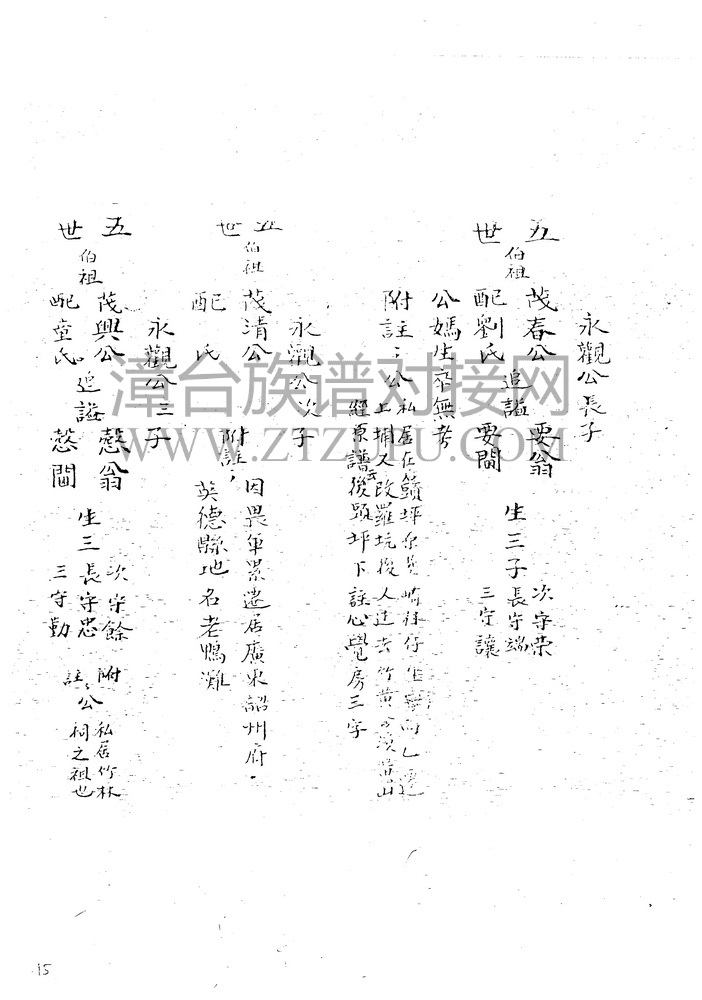 永觀公長子
五世
伯祖
茂春公 追謚 要翁
配劉氏 要閫
生三子 長守端
次守荣
三守讓
公媽生卒無考
附註：公私屋在
上埔又改羅坑後人
經原譜云後顕坪下註心覺房三字
永觀公次子
五世
伯祖
茂清公
配 氏
附註，因畏軍累遷居廣東韶州府，
英德縣地名老鴨灘
永觀公三子
五世
伯祖
茂興公 追謚 慤翁
配童氏 慤閫
生三 長守忠
次守餘
三守勤
附註，公私居竹林
祠之祖也
漳台族谱对接网
WWW.ZTZUPU.COM
15